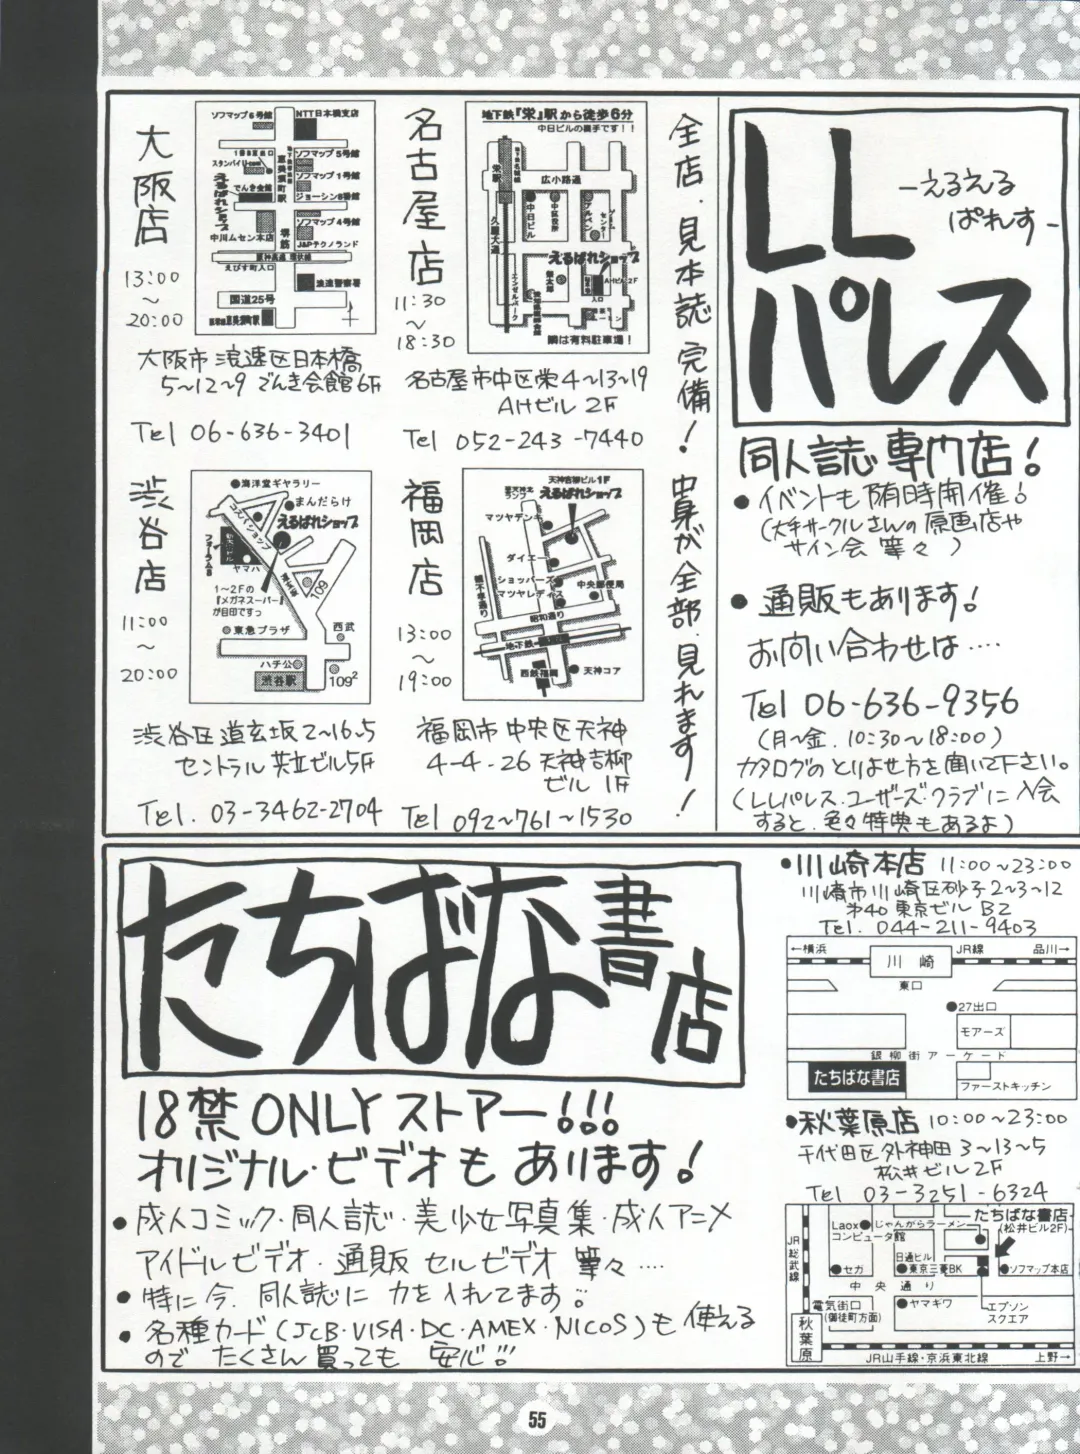 LL
パレス
-えるえる
ぱれす-
同人誌専門店!
●イベントも随時開催!
(大手サークルさんの原画店や
サイン会 等々)
●通販もあります!
お向い合わせは‥‥
Tel 06-636-9356
(月～金. 10:30～18:00)
カタログのとりよせ方を聞いて下さい。
(LLパレス・ユーザーズ・クラブに入会
すると、色々特典もあるよ)
全店、見本誌完備! 中身が全部、見れます!
名古屋店
11:30
～
18:30
地下鉄『栄』駅から徒歩6分
中日ビルの横手です!!
栄駅
広小路通
中日ビル
久屋大通
えるぱれショップ
AHビル2F
入口
隣は有料駐車場!
名古屋市中区栄4～13～19
AHビル 2F
Tel 052-243-7440
大阪店
13:00
～
20:00
ソフマップ6号館
NTT日本橋支店
恵美須町駅
ソフマップ5号館
ソフマップ1号館
ジョーシン8番館
ソフマップ4号館
でんき会館
えるぱれショップ
中川ムセン本店
堺筋
J&Pテクノランド
阪神高速 環状線
えびす町入口
浪速警察署
国道25号
大阪市浪速区日本橋
5～12～9 でんき会館6F
Tel 06-636-3401
福岡店
13:00
～
19:00
天神吉柳ビル1F
えるぱれショップ
マツヤデンキ
ダイエー
ショッパーズ
マツヤレディス
中央郵便局
昭和通り
地下鉄
西鉄福岡
天神コア
福岡市中央区天神
4-4-26 天神吉柳
ビル 1F
Tel 092～761～1530
渋谷店
11:00
～
20:00
●海洋堂ギャラリー
●まんだらけ
コスパショップ
えるぱれショップ
フォーラム8
ヤマハ
1～2Fの
『メガネスーパー』
が目印ですっ
109
東急プラザ
西武
ハチ公
渋谷駅
109²
渋谷区道玄坂2～16～5
セントラル共立ビル5F
Tel. 03-3462-2704
たちばな書店
18禁ONLYストアー!!!
オリジナル・ビデオもあります!
●成人コミック・同人誌・美少女写真集・成人アニメ
アイドルビデオ・通販 セルビデオ 等々‥‥
●特に今、同人誌に力を入れてます!
●各種カード(JCB・VISA・DC・AMEX・NICOS)も使える
のでたくさん買っても安心!!
●川崎本店 11:00～23:00
川崎市川崎区砂子2～3～12
オ40東京ビル B2
Tel. 044-211-9403
←横浜
川崎
JR線
品川→
東口
●27出口
モアーズ
銀柳街アーケード
たちばな書店
ファーストキッチン
●秋葉原店 10:00～23:00
千代田区外神田3～13～5
松井ビル2F
Tel 03-3251-6324
JR総武線
Laox●
コンピュータ館
じゃんがらラーメン
たちばな書店
(松井ビル2F)
日通ビル
●セガ
●東京三菱BK
●ソフマップ本店
中央通り
電気街口
(御徒町方面)
●ヤマギワ
エプソン
スクエア
秋葉原
JR山手線・京浜東北線
上野→
55